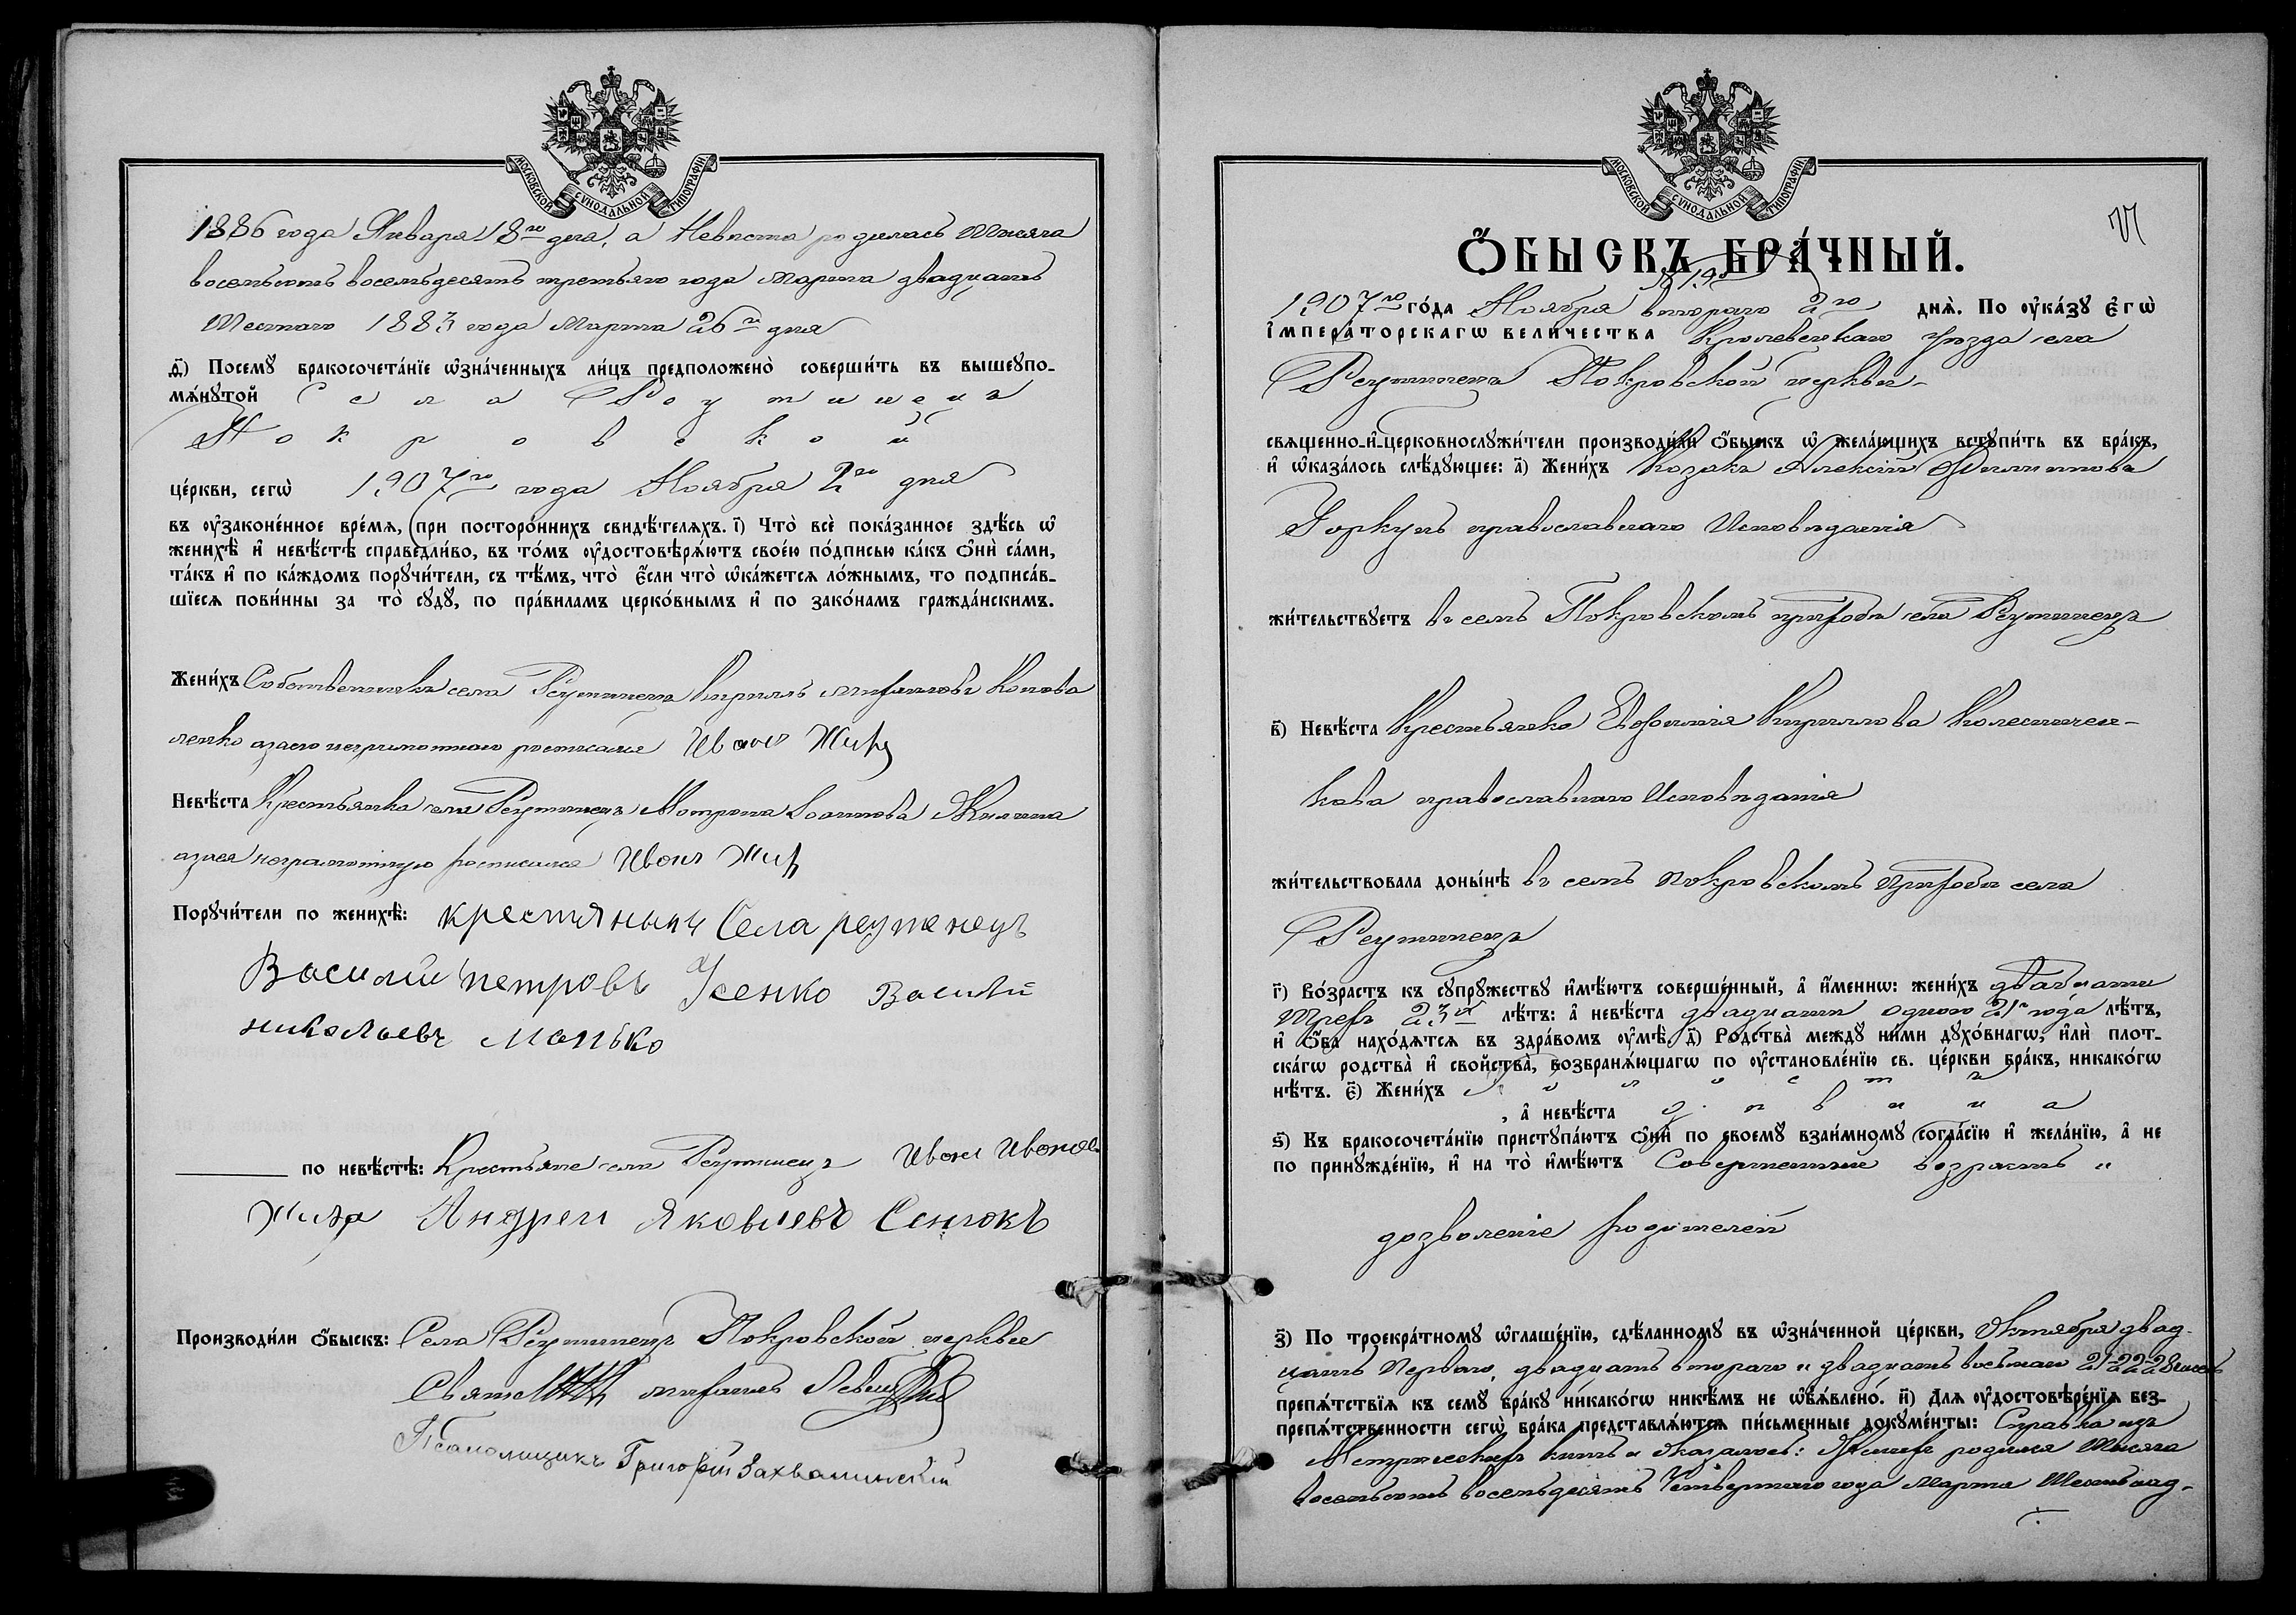 МОСКОВСКОЙ СУНОДАЛЬНОЙ ТИПОГРАФІИ
1886 года Января 18го дня, а Невѣста родилась Тысяча
восемьсотъ восемьдесятъ третьяго года Марта двадцать
Шестого 1883 года Марта 26го дня
д҃) Посемꙋ бракосочета́нїе ѡ҆зна́ченныхъ ли́цъ предположено̀ соверши́ть въ вышеꙋпо-
мѧ́нꙋтой Села Реутинецъ
Покровской
це́ркви, сегѡ̀ 1907го года Ноября 2го дня
въ ᲂу҆законе́нное вре́мѧ, при посторо́ннихъ свидѣ́телѧхъ. і҃) Что̀ всѐ пока́занное здѣ́сь ѡ҆
женихѣ̀ и҆ невѣ́стѣ справедли́во, въ то́мъ ᲂу҆достовѣрѧ́ютъ свое́ю по́дписью ка́къ ѻ҆нѝ са́ми,
та́къ и҆ по ка́ждомъ порꙋчи́тели, съ тѣ́мъ, что̀ є҆́сли что̀ ѡ҆ка́жетсѧ ло́жнымъ, то подписа́в-
шїесѧ пови́нны за то̀ сꙋдꙋ̀, по пра́виламъ церко́внымъ и҆ по зако́намъ гражда́нскимъ.
Жени́хъ Собственникъ села Реутинецъ Кириллъ Михаиловъ Конова
ленко азаего неграмотного росписался Иванъ Жиръ
Невѣ́ста Крестьянка села Реутинецъ Мотрона Іоаннова Жилина
азаея неграмотную росписался Иванъ Жиръ
Порꙋчи́тели по женихѣ̀: крестянынъ Села реутенецъ
Василий петровъ Усенко Василий
николаевъ Манько
по невѣ́стѣ: Крестьяне села Реутинецъ Иванъ Иванов
Жиръ Андреи Яковлевъ Сенюкъ
Производи́ли ѻ҆́быскъ: Села Реутинецъ Покровской церкви
Священникъ Михаилъ Левицкій
Псаломщикъ Григорій Захвалинскій
МОСКОВСКОЙ СУНОДАЛЬНОЙ ТИПОГРАФІИ
Ѻ҆́БЫСКЪ БРА́ЧНЫЙ.
№ 19
1907го го́да Ноября второго 2го днѧ̀. По ᲂу҆ка́зꙋ є҆гѡ̀
і҆мпера́торскагѡ вели́чества Кролевецкаго уѣзда села
Реутинецъ Покровской церкви
свѧщенно-и҆-церковнослꙋжи́тели производи́ли ѻ҆́быскъ ѡ҆ жела́ющихъ встꙋпи́ть въ бра́къ,
и҆ ѡ҆каза́лось слѣ́дꙋющее: а҃) Жени́хъ Козакъ Алексій Филипповъ
православнаго Исповѣданія
жи́тельствꙋетъ въ семъ Покровскомъ приходѣ села Реутинецъ
в҃) Невѣ́ста Крестьянка Евфимія Кириллова Колесничен-
кова православнаго Исповѣданія
жи́тельствовала доны́нѣ въ семъ покровскомъ приходѣ села
Реутинецъ
г҃) Во́зрастъ къ сꙋпрꙋ́жествꙋ и҆мѣ́ютъ соверше́нный, а҆ и҆́меннѡ: жени́хъ двадцати
трехъ 23хъ лѣ́тъ: а҆ невѣ́ста двадцати одного 21го года лѣ́тъ,
и҆ ѻ҆́ба нахо́дѧтсѧ въ здра́вомъ ᲂу҆мѣ̀. д҃) Родства̀ междꙋ̀ ни́ми дꙋхо́внагѡ, и҆лѝ плот-
ска́гѡ родства̀ и҆ свойства̀, возбранѧ́ющагѡ по ᲂу҆становле́нїю св. це́ркви бра́къ, никако́гѡ
нѣ́тъ. є҃) Жени́хъ холостъ
, а҆ невѣ́ста дѣвица
ѕ҃) Къ бракосочета́нїю пристꙋпа́ютъ ѻ҆нѝ по своемꙋ̀ взаи́мномꙋ согла́сїю и҆ жела́нїю, а҆ не
по принꙋжде́нїю, и҆ на то̀ и҆мѣ́ютъ Совершенный возрастъ и
дозволеніе родителей
з҃) По троекра́тномꙋ ѡ҆глаше́нїю, сдѣ́ланномꙋ въ ѡ҆зна́ченной це́ркви, Октября двад-
цать Первого, двадцать второго и двадцать восьмого 21-22-28 числъ
препѧ́тствїѧ къ семꙋ̀ бра́кꙋ никако́гѡ никѣ́мъ не ѡ҆б̾ѧ́влено. и҃) Длѧ ᲂу҆достовѣре́нїѧ без-
препѧ́тственности сегѡ̀ бра́ка представлѧ́ютсѧ пи́сьменные докꙋме́нты: Справка изъ
Метрическихъ книгъ и оказалось: Женихъ родился Тысяча
восемьсотъ восемьдесятъ Четвертаго года Марта Шестьнад-